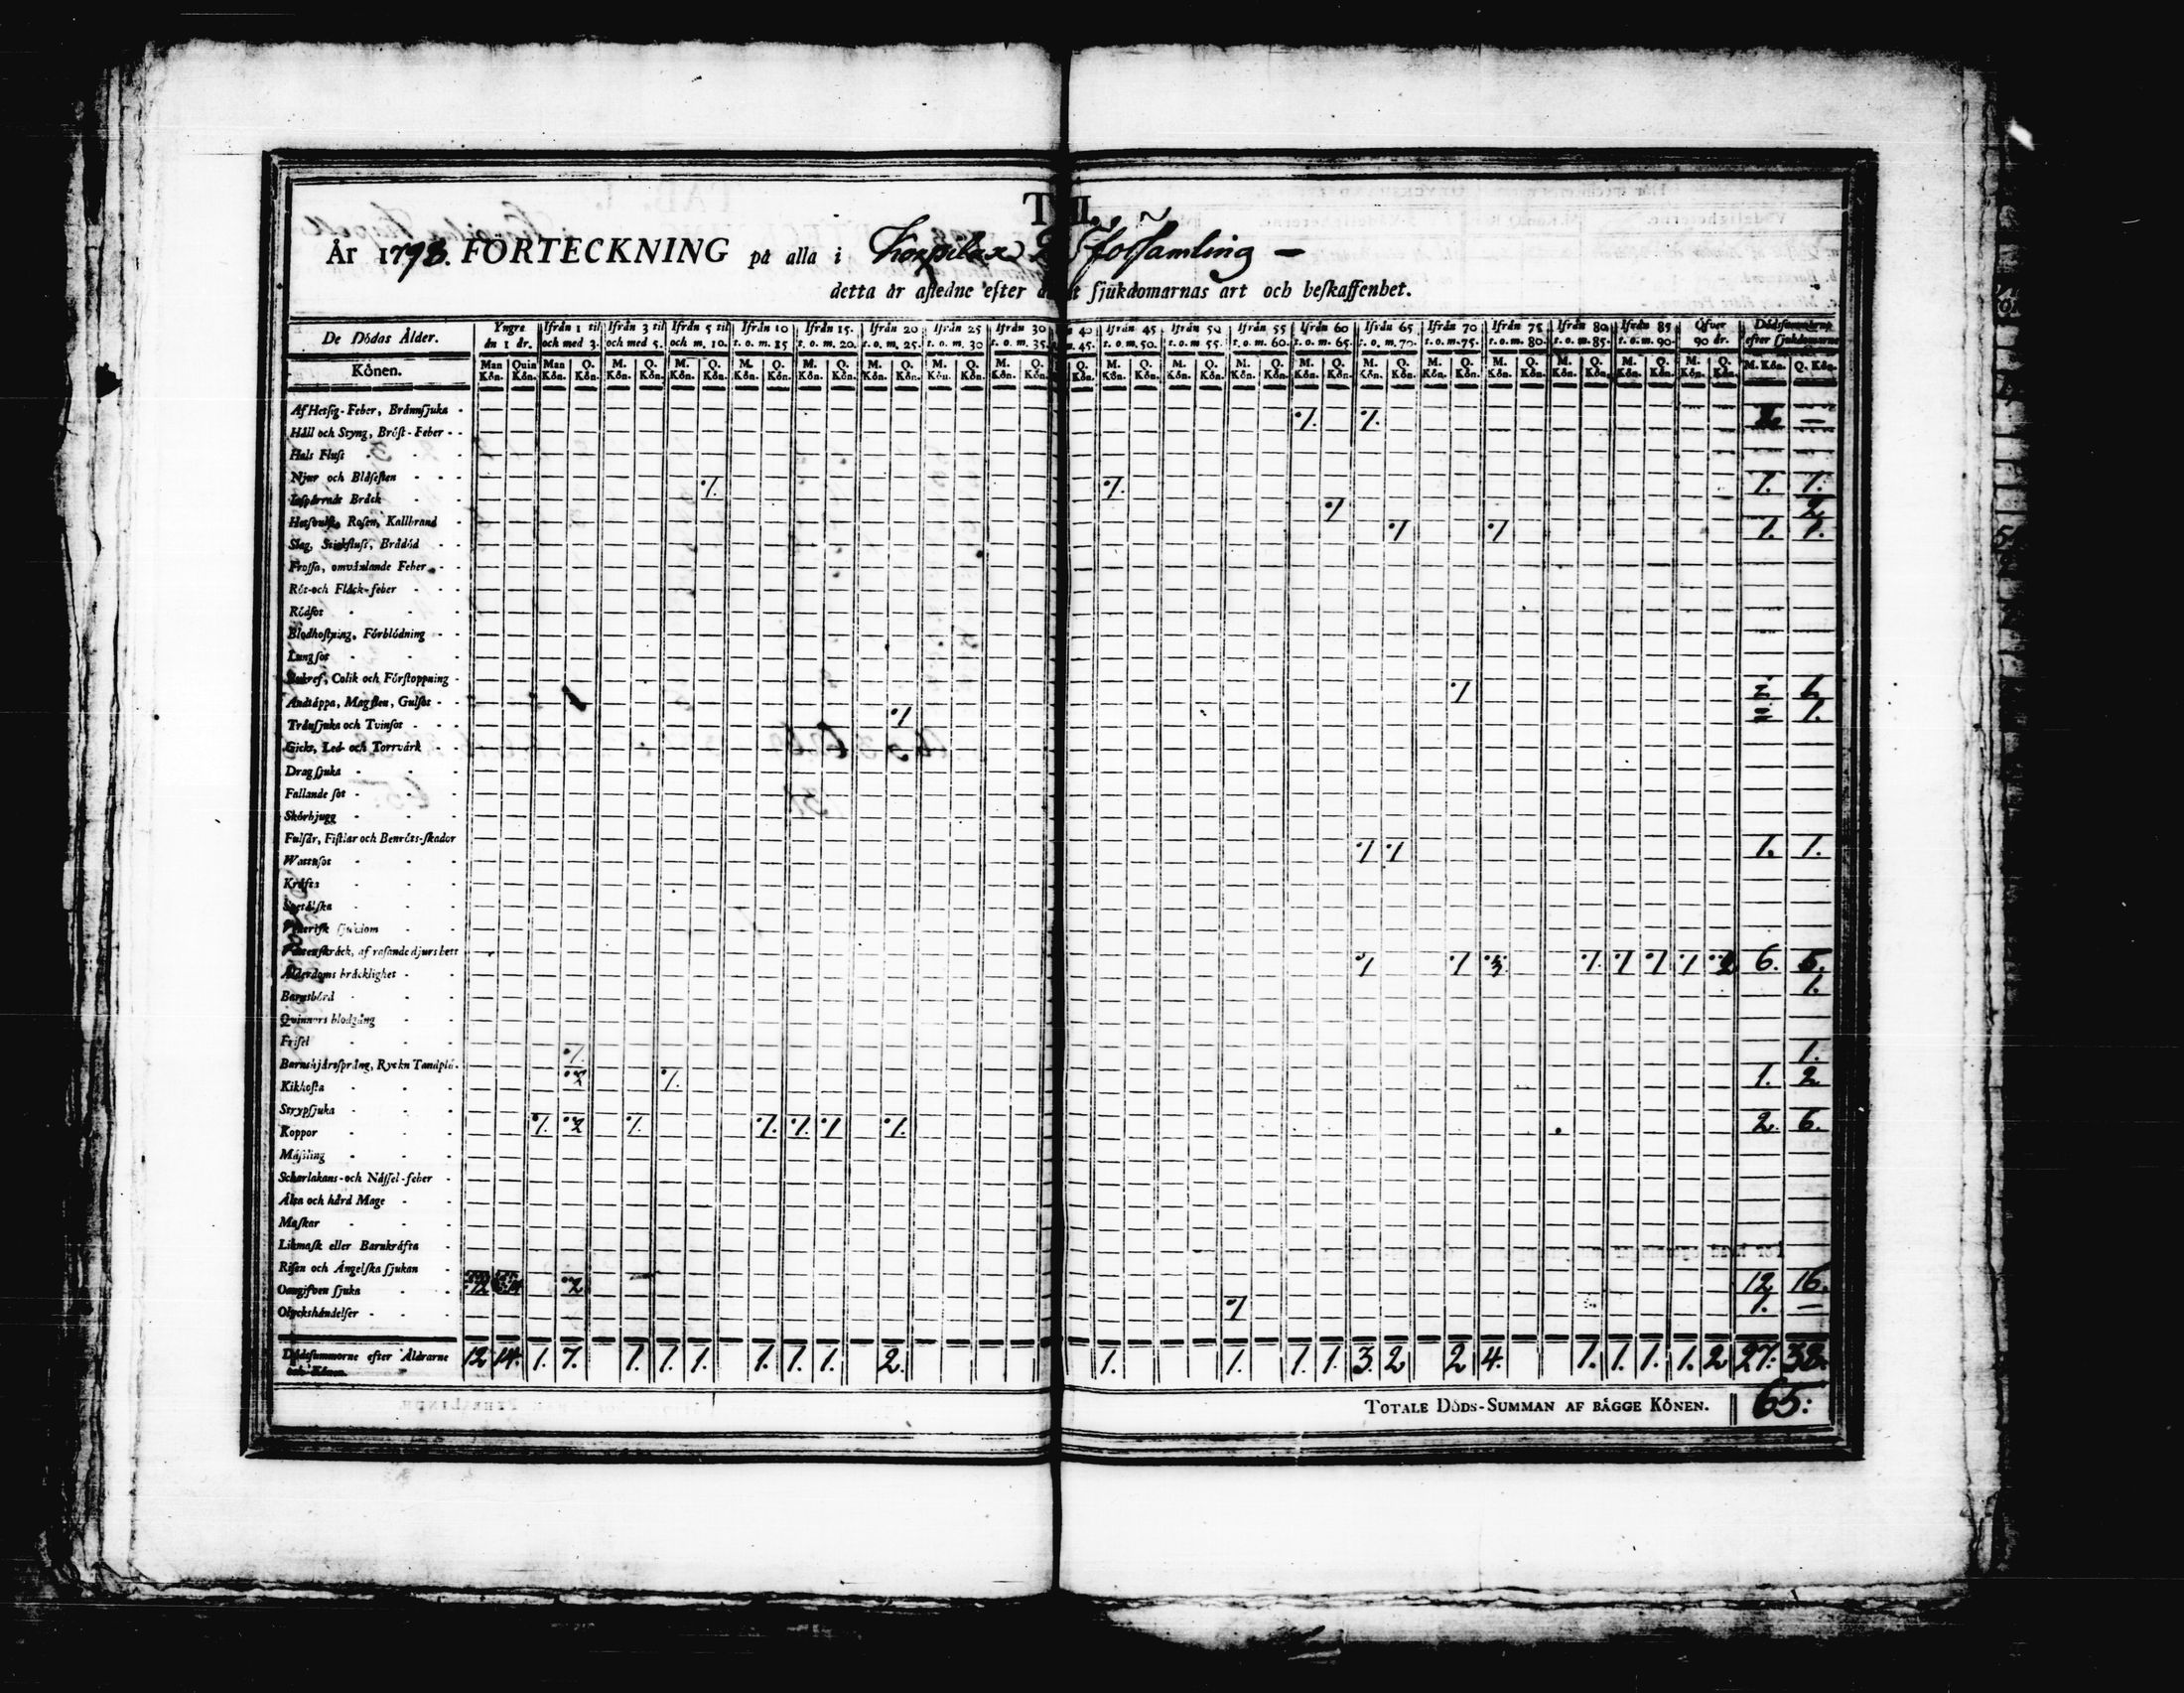 T II.
År 1798. FÖRTECKNING på alla i Församling –
detta år afledne efter sjukdomarnas art och beskaffenhet.
De Dödas Ålder. Yngre än 1 år. Ifrån 1 til och med 3. Ifrån 3 til och med 5. Ifrån 5 til och m. 10. Ifrån 10 t. o. m. 15 Ifrån 15. t. o. m. 20. Ifrån 20 t. o. m. 25. Ifrån 25 t. o. m. 30 Ifrån 30 t. o. m. 35. 40 m. 45. Ifrån 45 t. o. m. 50. Ifrån 50 t. o. m. 55. Ifrån 55 t. o. m. 60. Ifrån 60 t. o. m. 65. Ifrån 65 t. o. m. 70. Ifrån 70 t. o. m. 75. Ifrån 75 t. o. m. 80. Ifrån 80 t. o. m. 85. Ifrån 85 t. o. m. 90. Öfver 90 år. Dödssummorne efter sjukdomarne
Könen. Man Kön. Quin Kön. Man Kön. Q. Kön. M. Kön. Q. Kön. M. Kön. Q. Kön. M. Kön. Q. Kön. M. Kön. Q. Kön. M. Kön. Q. Kön. M. Kön. Q. Kön. M. Kön. Q. Kön. Q. Kön. M. Kön. Q. Kön. M. Kön. Q. Kön. M. Kön. Q. Kön. M. Kön. Q. Kön. M. Kön. Q. Kön. M. Kön. Q. Kön. M. Kön. Q. Kön. M. Kön. Q. Kön. M. Kön. Q. Kön. M. Kön. Q. Kön. M. Kön. Q. Kön.
Af Hetsig-Feber, Brännsjuka 1. 1. 2. –
Håll och Styng, Bröst-Feber
Hals Fluss
Njur och Blåsesten 1. 1. 1. 1.
Inspärrade Bråck 1 2
Hetsvulst, Rosen, Kallbrand 1 1 1. 1.
Slag, Stickfluss, Brådöd
Frossa, omväxlande Feber
Röt-och Fläck-feber
Rödsot
Blodhostning, Förblödning
Lungsot
Bukref, Colik och Förstoppning 1
Andtäppa, Magsten, Gulsot 1 1.
Trånsjuka och Tvinsot
Gickt, Led- och Torrvärk
Dragsjuka
Fallande sot
Skörbjugg
Fulsår, Fistlar och Benröts-skador 1 1 1. 1.
Wattusot
Kräfta
Spetälska
Venerisk sjukdom
Vattenskräck, af rasande djurs bett 1 1 3 1. 1 1 1 2 6. 5.
Ålderdoms bräcklighet 1.
Barnsbörd
Quinnors blodgång
Frisel 1. 1.
Barnshjärtsprång, Ryckn Tandplå. 2 1. 1. 2
Kikhosta
Strypsjuka 1. 2 1. 1. 1. 1 1. 2. 6.
Koppor
Mässling
Scharlakans-och Nässel-feber
Älta och hård Mage
Maskar
Likmask eller Barnkräfta
Risen och Ängelska sjukan 12 14 2 12 16.
Oangifven sjuka 1 1. –
Olyckshändelser
Dödssummorne efter Åldrarne och Könen. 12 14. 1. 7. 1. 1. 1. 1. 1. 1. 2. 1. 1. 1. 1. 3. 2 2 4. 1. 1. 1. 1. 2 27. 38.
TOTALE DÖDS-SUMMAN AF BÅGGE KÖNEN. 65.